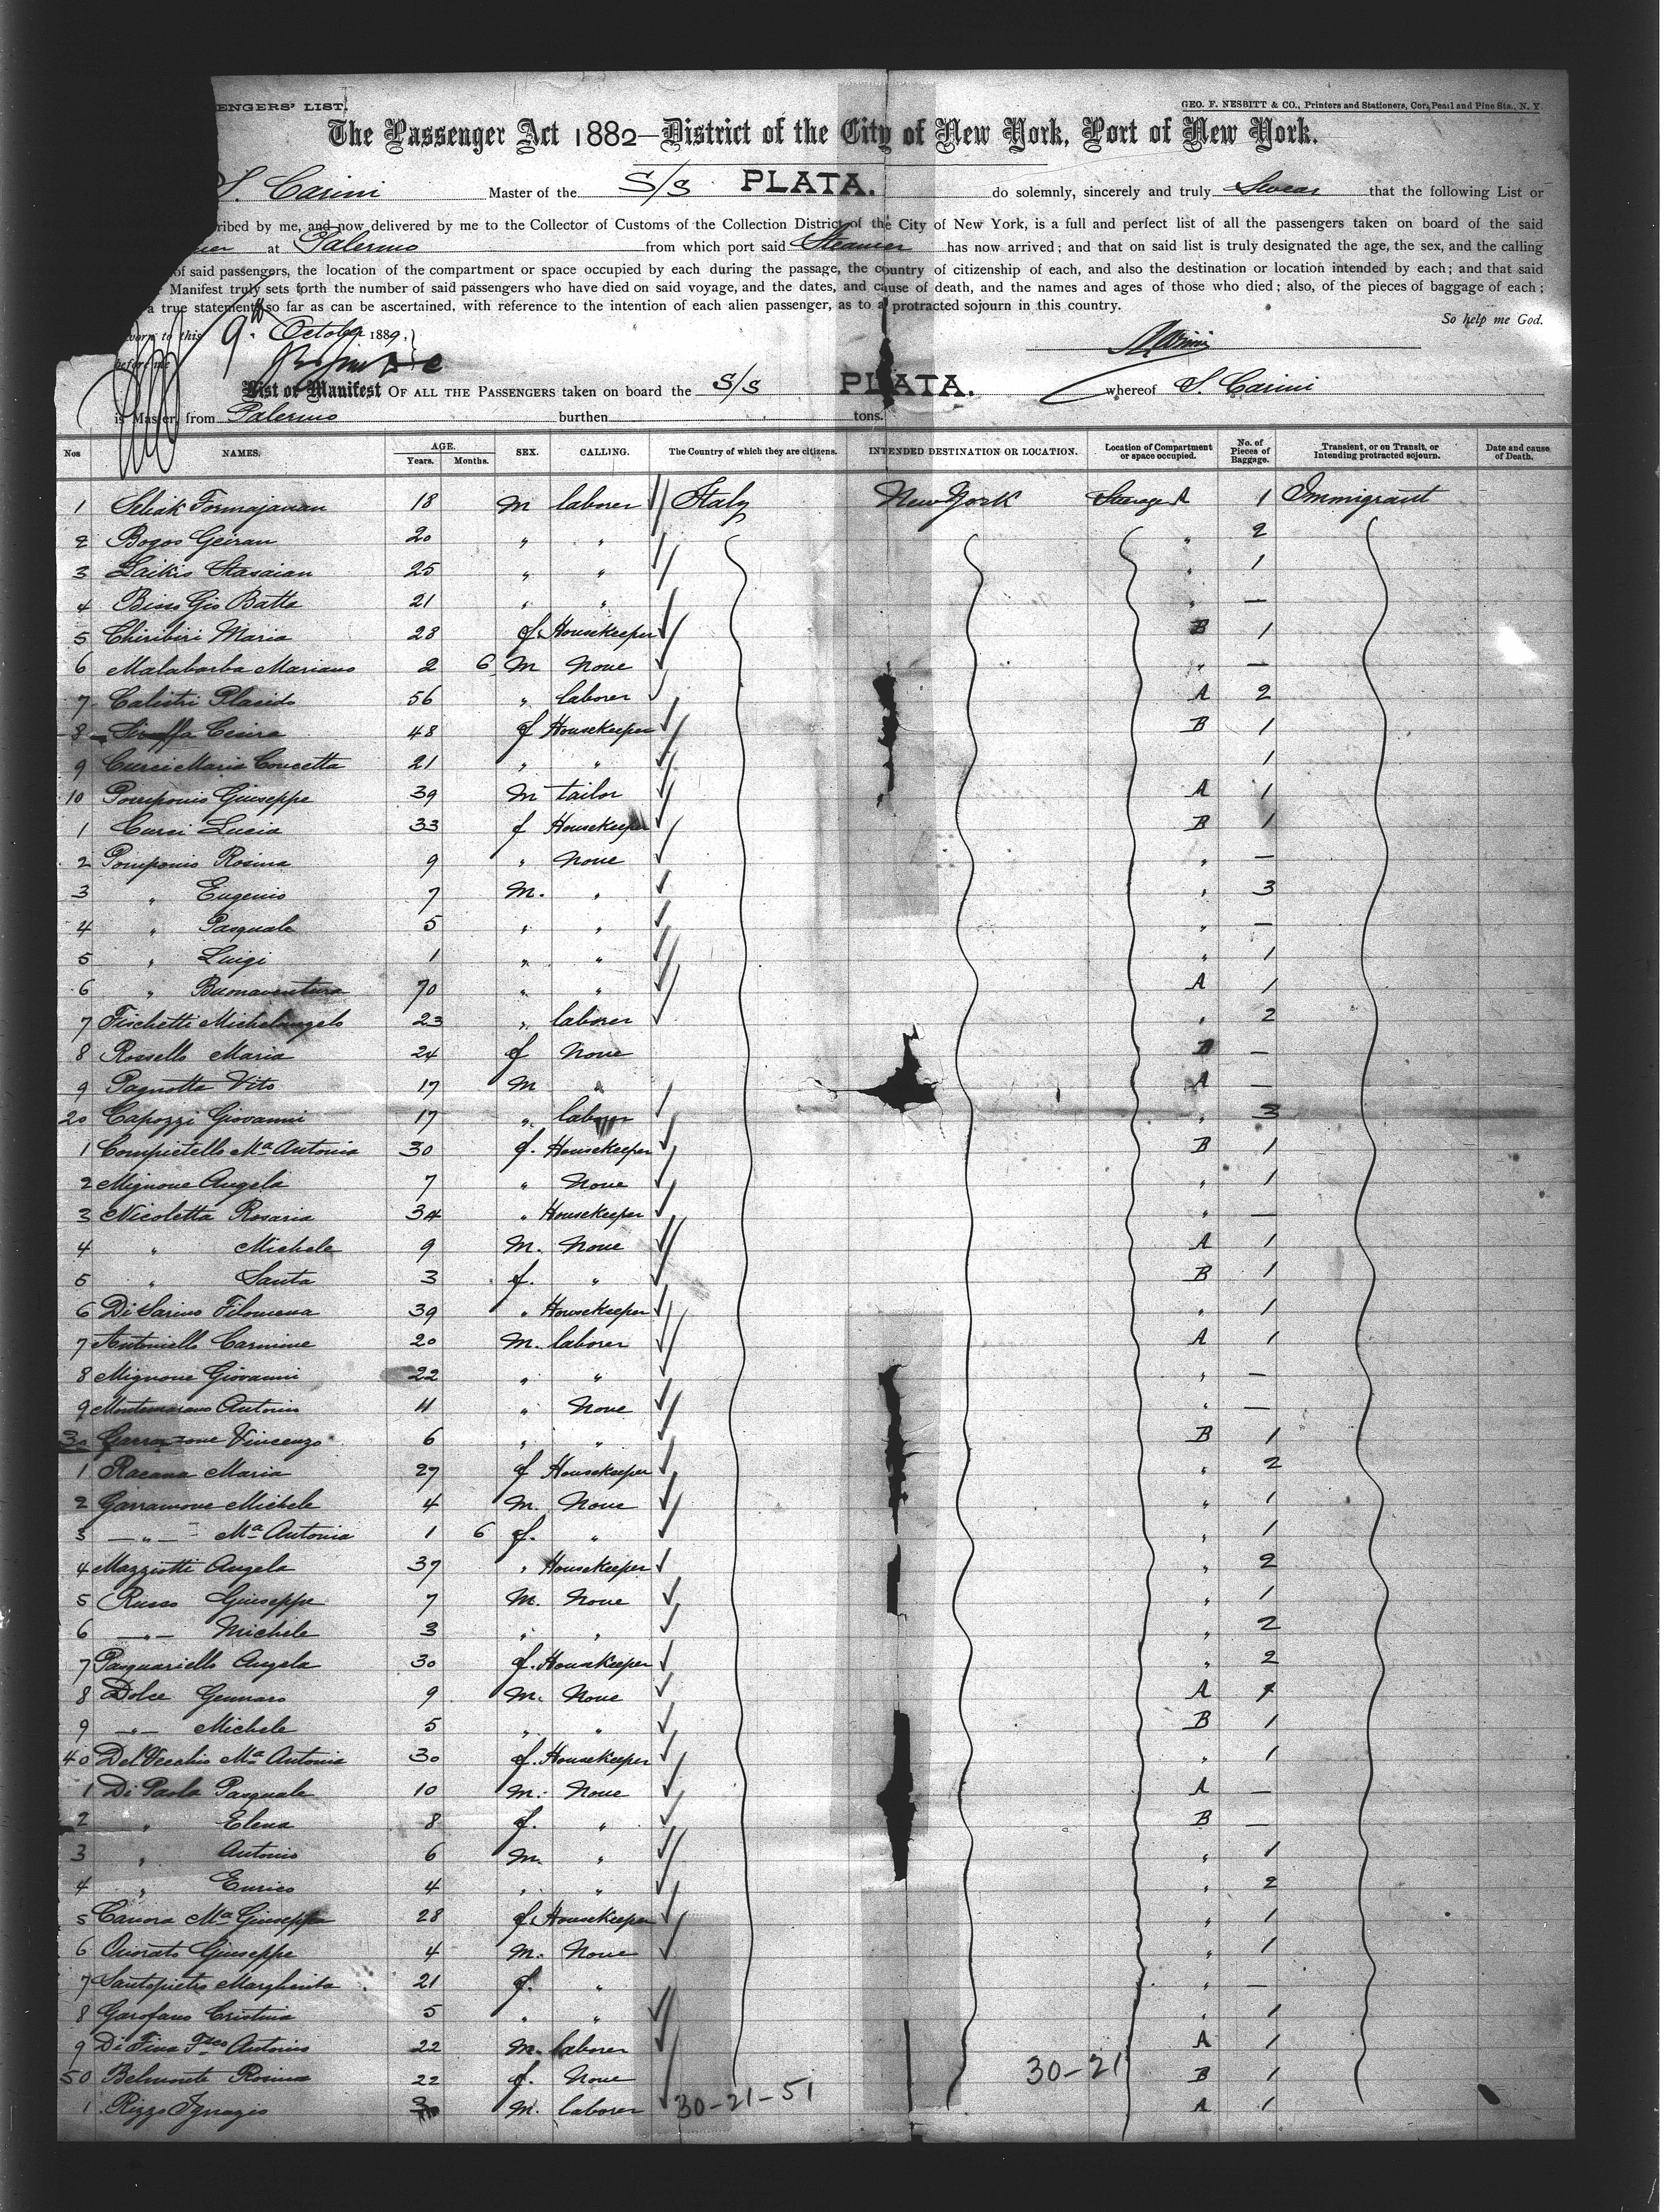 ENGERS' LIST.
GEO. F. NESBITT & CO., Printers and Stationers, Cor. Pearl and Pine Sts., N. Y.
The Passenger Act 1882—District of the City of New York, Port of New York.
S. Carini Master of the S/S PLATA. do solemnly, sincerely and truly Swear that the following List or
ribed by me, and now delivered by me to the Collector of Customs of the Collection District of the City of New York, is a full and perfect list of all the passengers taken on board of the said
at Palermo from which port said Steamer has now arrived; and that on said list is truly designated the age, the sex, and the calling
of said passengers, the location of the compartment or space occupied by each during the passage, the country of citizenship of each, and also the destination or location intended by each; and that said
Manifest truly sets forth the number of said passengers who have died on said voyage, and the dates, and cause of death, and the names and ages of those who died; also, of the pieces of baggage of each;
a true statement, so far as can be ascertained, with reference to the intention of each alien passenger, as to a protracted sojourn in this country.
So help me God.
worn to this 9th October 1889.
before me
List or Manifest OF ALL THE PASSENGERS taken on board the S/S PLATA. whereof S. Carini
is Master, from Palermo burthen tons.
Nos NAMES. AGE. Years. Months. SEX. CALLING. The Country of which they are citizens. INTENDED DESTINATION OR LOCATION. Location of Compartment or space occupied. No. of Pieces of Baggage. Transient, or on Transit, or Intending protracted sojourn. Date and cause of Death.
1 18 M laborer Italy New York Steerage A 1 Immigrant
2 Bogos Geiran 20 " " " 2
3 25 " " " 1
4 Gio Batta 21 " " " —
5 Chiribiri Maria 28 f. Housekeeper B 1
6 Malabarba Mariano 2 6 M None " —
7 Calistri Placido 56 " laborer A 2
8 48 f Housekeeper B 1
9 Curci Maria Concetta 21 " " 1
10 Pomponio Giuseppe 39 M tailor A 1
1 Curci Lucia 33 f Housekeeper B 1
2 Pomponio Rosina 9 " None " —
3 " Eugenio 7 M. " " 3
4 " Pasquale 5 " " " —
5 " Luigi 1 " " " 1
6 " Buonaventura 70 " " A 1
7 Fischetti Michelangelo 23 " laborer " 2
8 Rossello Maria 24 f None B —
9 Pagnotta Vito 17 M " A —
20 Capozzi Giovanni 17 " laborer " 3
1 Compietello Ma Antonia 30 f. Housekeeper B 1
2 Mignone Angela 7 " None " 1
3 Nicoletta Rosaria 34 " Housekeeper " —
4 " Michele 9 M. None A 1
5 " Santa 3 f. " B 1
6 Di Sarino Filomena 39 " Housekeeper " 1
7 Antoniello Carmine 20 M. laborer A 1
8 Mignone Giovanni 22 " " " —
9 Montemarano Antonio 11 " None " —
30 Garramone Vincenzo 6 " " B 1
1 Racana Maria 27 f Housekeeper " 2
2 Garramone Michele 4 M. None " 1
3 — " — Ma Antonia 1 6 f. " " 1
4 Mazziotti Angela 37 " Housekeeper " 2
5 Russo Giuseppe 7 M. None " 1
6 — " — Michele 3 " " " 2
7 Pasquariello Angela 30 f. Housekeeper " 2
8 Dolce Gennaro 9 M. None A 1
9 — " — Michele 5 " " B 1
40 Del Vecchio Ma Antonia 30 f. Housekeeper " 1
1 Di Paola Pasquale 10 M. None A —
2 " Elena 8 f. " B —
3 " Antonio 6 M. " " 1
4 " Enrico 4 " " " 2
5 Canora Ma Giuseppa 28 f. Housekeeper " 1
6 Onorato Giuseppe 4 M. None " 1
7 Santopietro Margherita 21 f. " " —
8 Garofano Cristina 5 " " " 1
9 Di Fina Fsco Antonio 22 M. laborer A 1
50 Belmonte Rosina 22 f. None B 1
1 Rizzo Ignazio M. laborer A 1
30-21-51
30-21